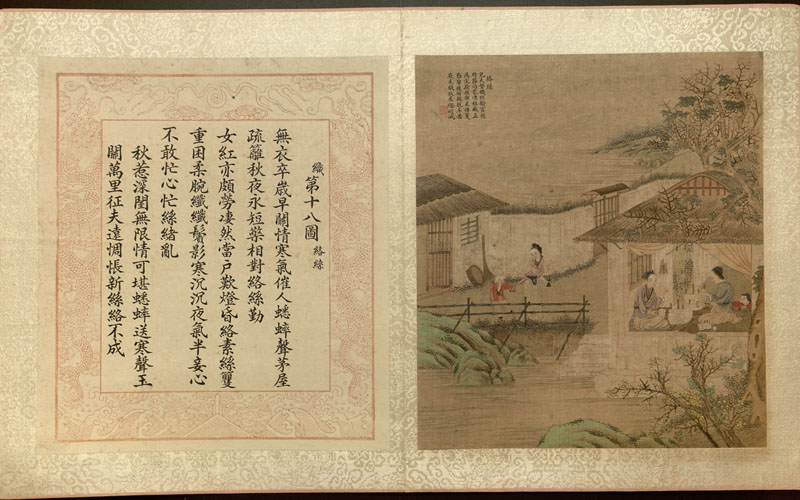 織第十八圖 絡絲
無衣卒歲早關情寒氣催人蟋蟀聲茅屋
疏籬秋夜永短檠相對絡絲勤
女紅亦頗勞凄然當戶歎燈昏絡素絲雙
重困柔腕纖纖鬢影寒沉沉夜氣半妾心
不敢忙心忙絲緒亂
秋惹深閨無限情可堪蟋蟀送寒聲玉
關萬里征夫遠惆悵新絲絡不成
絡絲